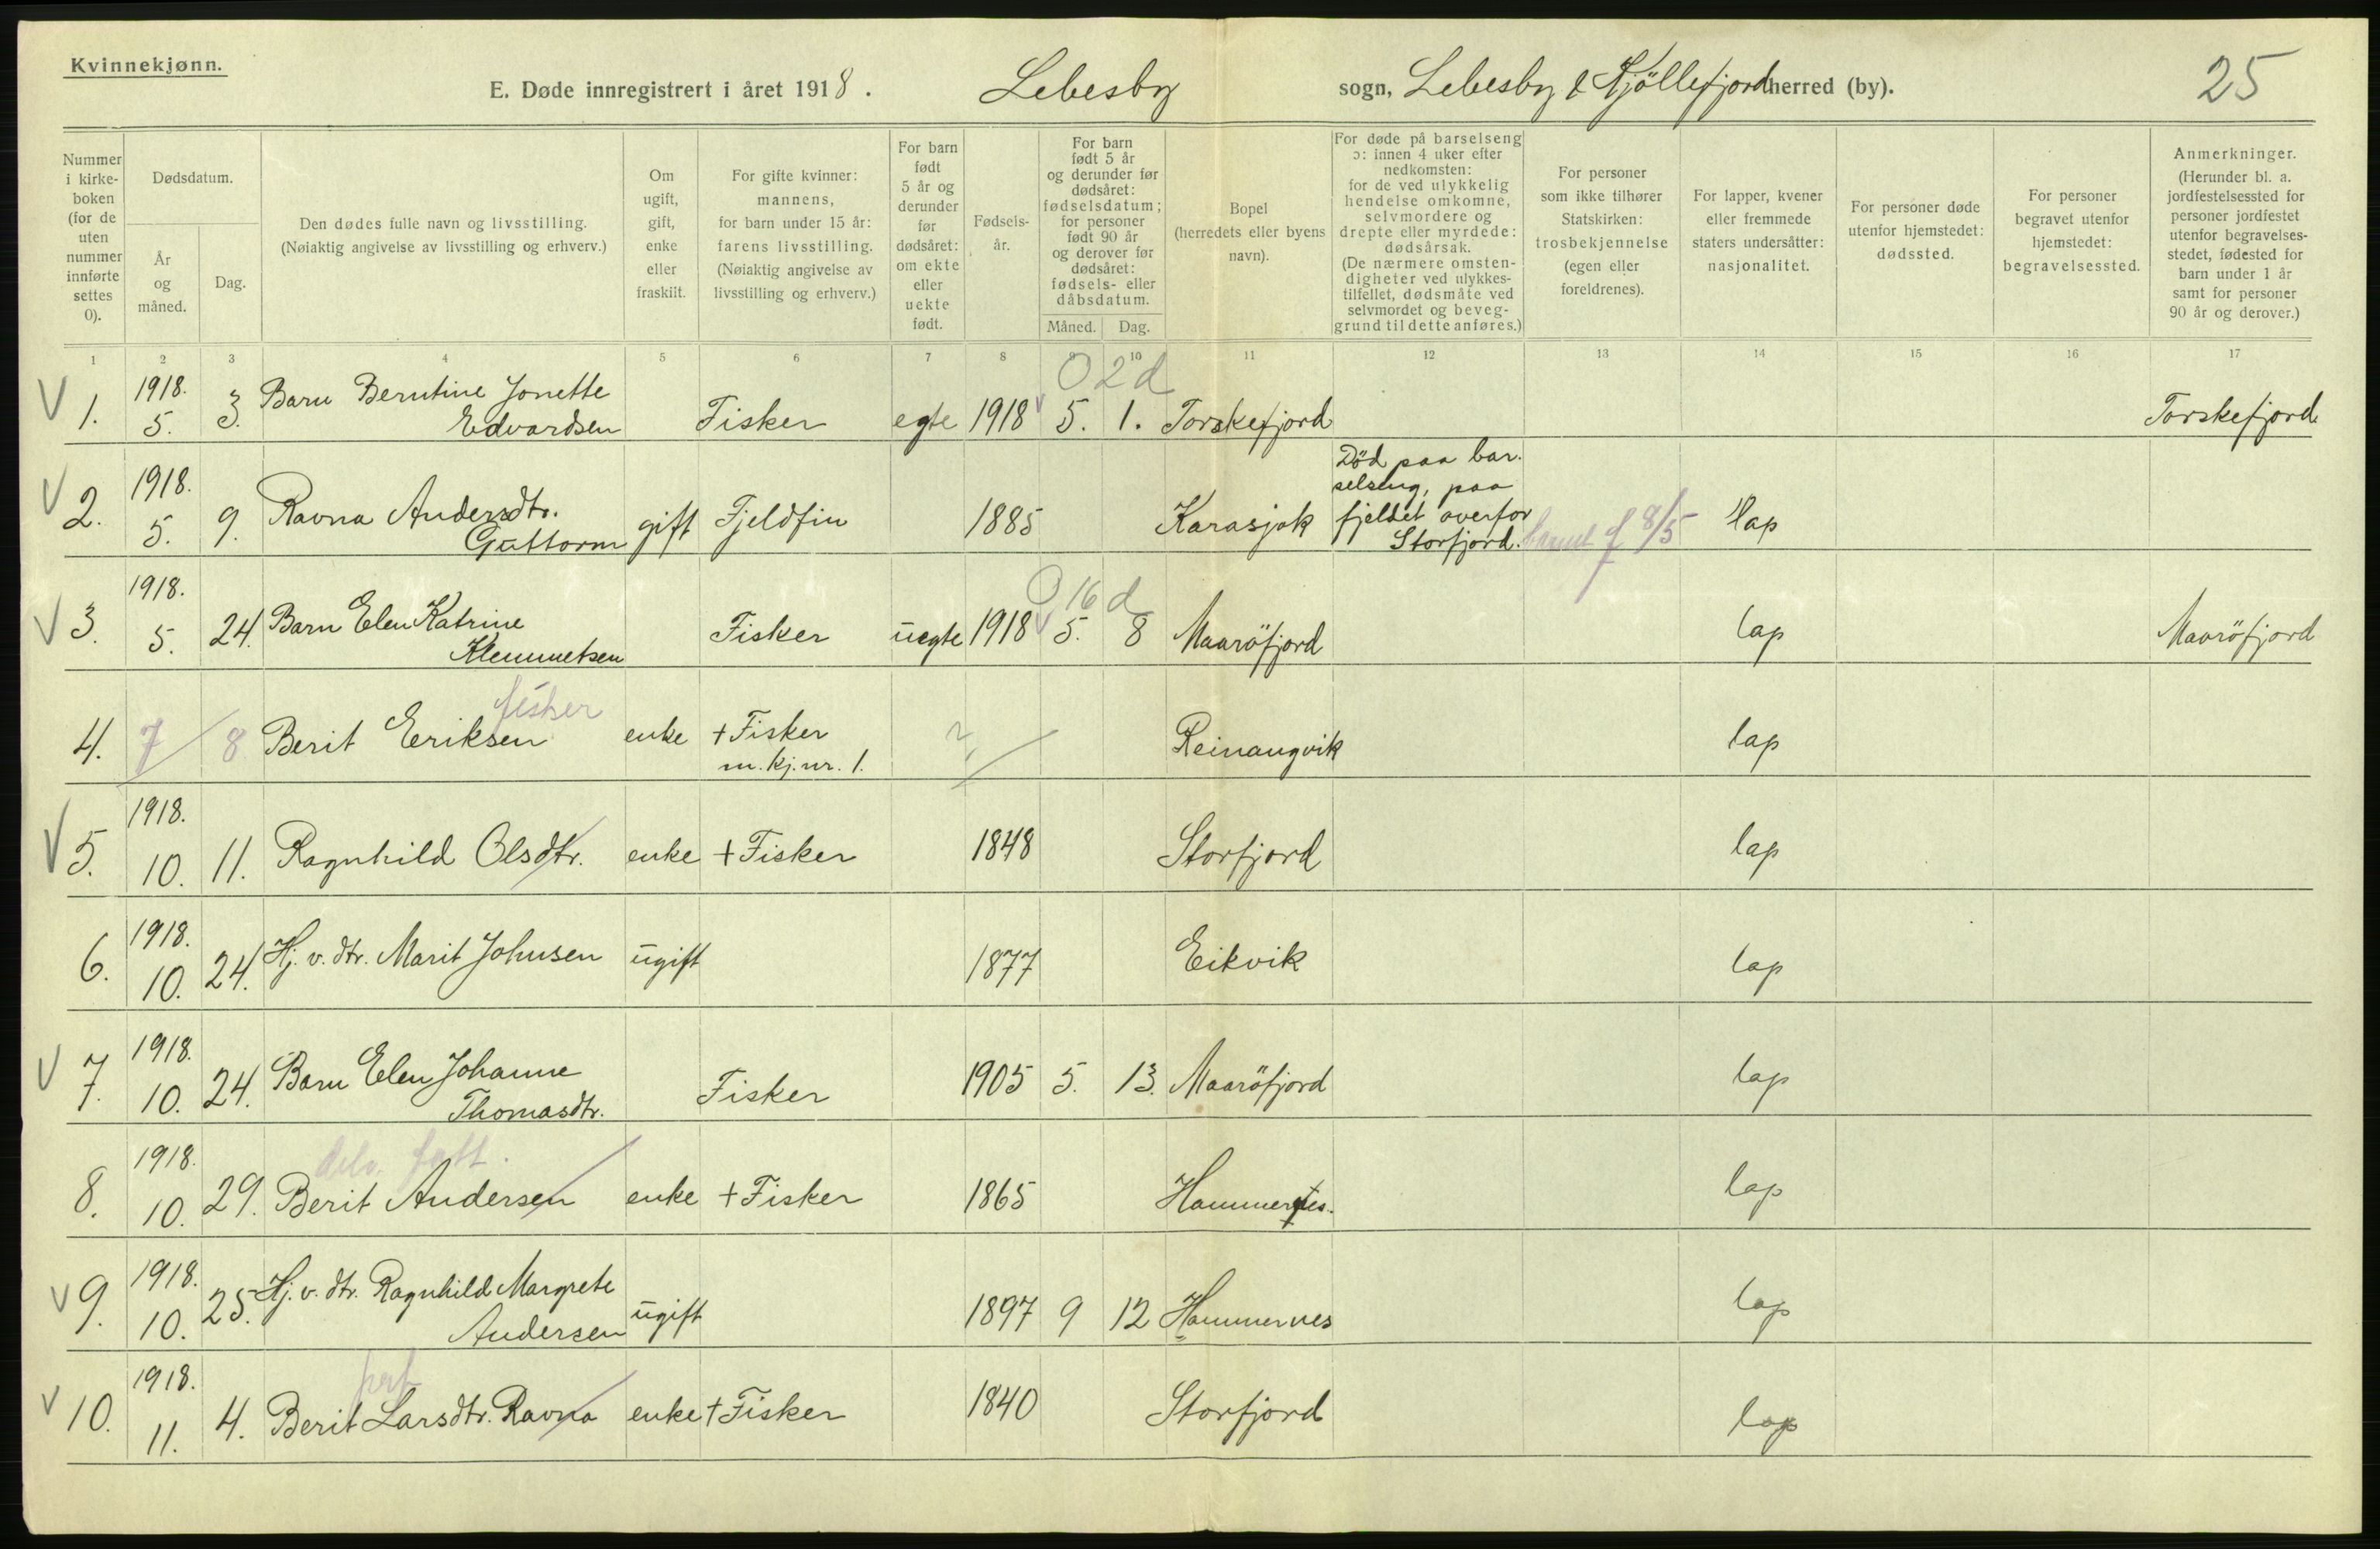 Kvinnekjønn.
E. Døde innregistrert i året 1918. Lebesby sogn, Lebesby & Kjöllefjord herred (by). 25
Nummer i kirke- boken (for de uten nummer innførte settes 0).
Dødsdatum.
År og måned.
Dag.
Den dødes fulle navn og livsstilling. (Nøiaktig angivelse av livsstilling og erhverv.)
Om ugift, gift, enke eller fraskilt.
For gifte kvinner: mannens, for barn under 15 år: farens livsstilling. (Nøiaktig angivelse av livsstilling og erhverv.)
For barn født 5 år og derunder før dødsåret: om ekte eller uekte født.
Fødsels- år.
For barn født 5 år og derunder før dødsåret: fødselsdatum; for personer født 90 år og derover før dødsåret: fødsels- eller dåbsdatum.
Måned. Dag.
Bopel (herredets eller byens navn).
For døde på barselseng ɔ: innen 4 uker efter nedkomsten: for de ved ulykkelig hendelse omkomne, selvmordere og drepte eller myrdede: dødsårsak. (De nærmere omsten- digheter ved ulykkes- tilfellet, dødsmåte ved selvmordet og beveg- grund til dette anføres.)
For personer som ikke tilhører Statskirken: trosbekjennelse (egen eller foreldrenes).
For lapper, kvener eller fremmede staters undersåtter: nasjonalitet.
For personer døde utenfor hjemstedet: dødssted.
For personer begravet utenfor hjemstedet: begravelsessted.
Anmerkninger. (Herunder bl. a. jordfestelsessted for personer jordfestet utenfor begravelses- stedet, fødested for barn under 1 år samt for personer 90 år og derover.)
1 2 3 4 5 6 7 8 9 10 11 12 13 14 15 16 17
0 2 d
V 1. 1918. 5. 3. Barn Berntine Jonette Edvardsen Fisker egte 1918 V 5. 1. Torskefjord Torskefjord
V 2. 1918. 5. 9. Ravna Andersdtr. Guttorm gift Fjeldfin 1885 Karasjok Död paa bar- selseng, paa fjeldet overfor Storfjord. barnet f 8/5 lap
0 16 d
V 3. 1918. 5. 24. Barn Elen Katrine Klemmetsen Fisker uegte 1918 V 5. 8 Maaröfjord lap Maaröfjord
fisker
4. 7 / 8 Berit Eriksen enke + Fisker m. kj. nr. 1. ? Reinaugvik lap
V 5. 1918. 10. 11. Ragnhild Olsdtr. enke + Fisker 1848 Storfjord lap
6. 1918. 10. 24. Hj. v. dtr. Marit Johnsen ugift 1877 Eikvik lap
V 7. 1918. 10. 24. Barn Elen Johanne Thomasdtr. Fisker 1905 5. 13. Maaröfjord lap
8. 1918. 10. 29. Berit Andersen enke + Fisker 1865 Hammernes. lap
V 9. 1918. 10. 25. Hj. v. dtr. Ragnhild Margrete Andersen ugift 1897 9 12 Hammernes lap
V 10. 1918. 11. 4. Berit Larsdtr. Ravna enke + Fisker 1840 Storfjord lap